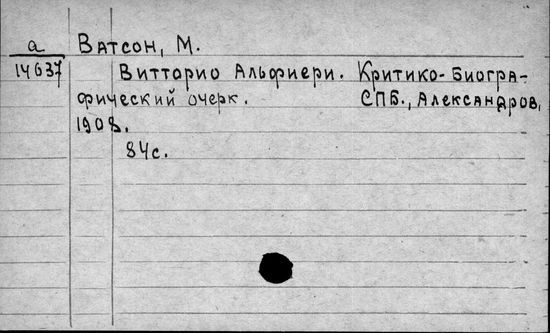 а Ватсон, М.
14637 Витторио Альфиери. Критико-биогра-
фический очерк. СПБ., Александров,
1908.
84с.